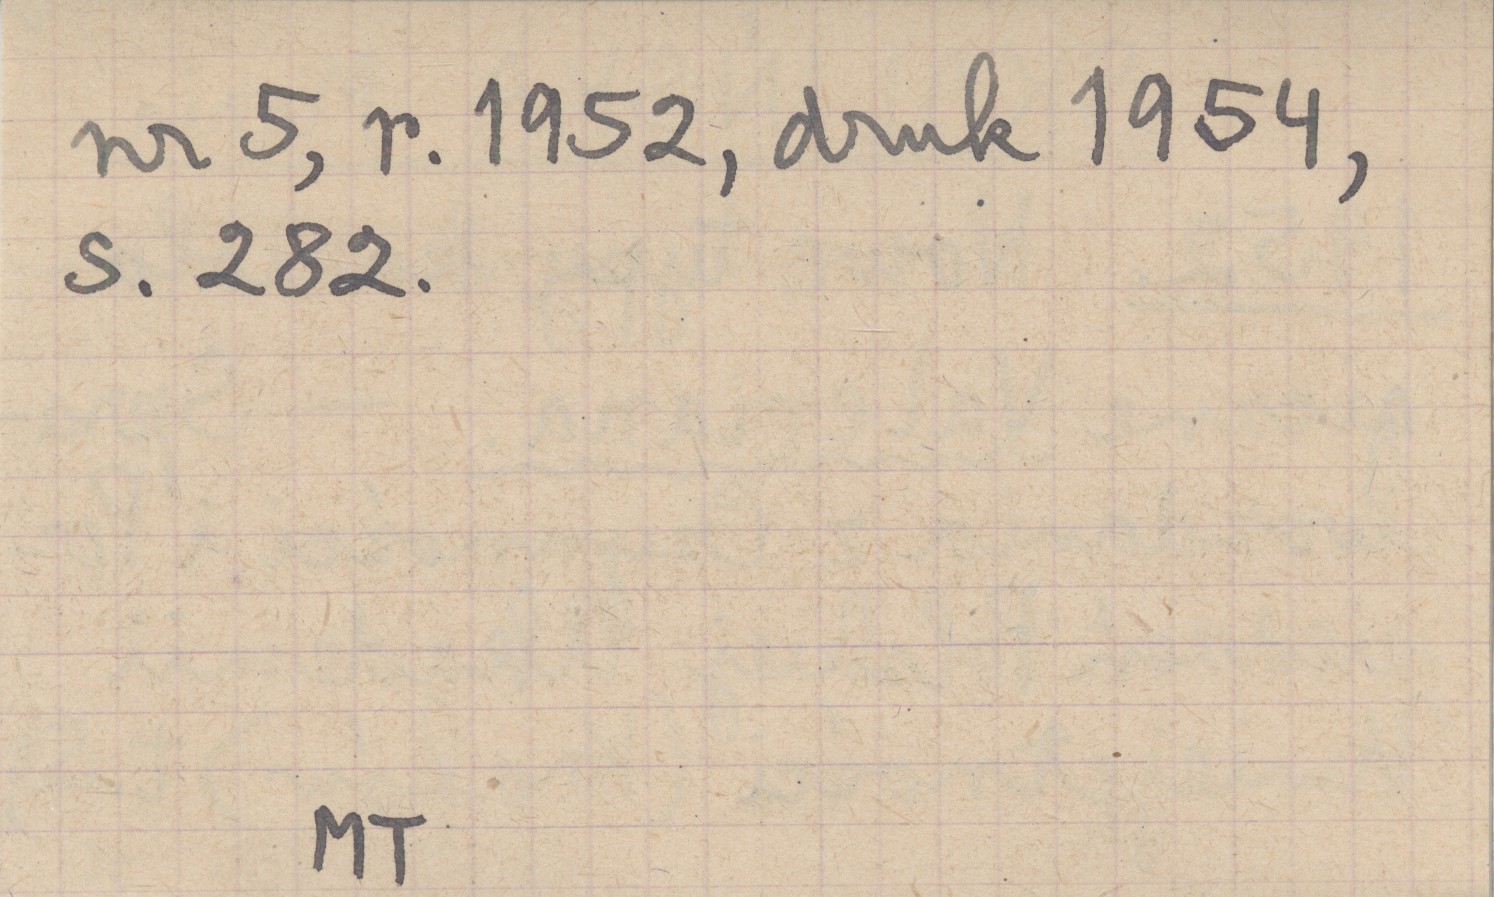 nr 5, r. 1952, druk 1954,
s. 282.
MT